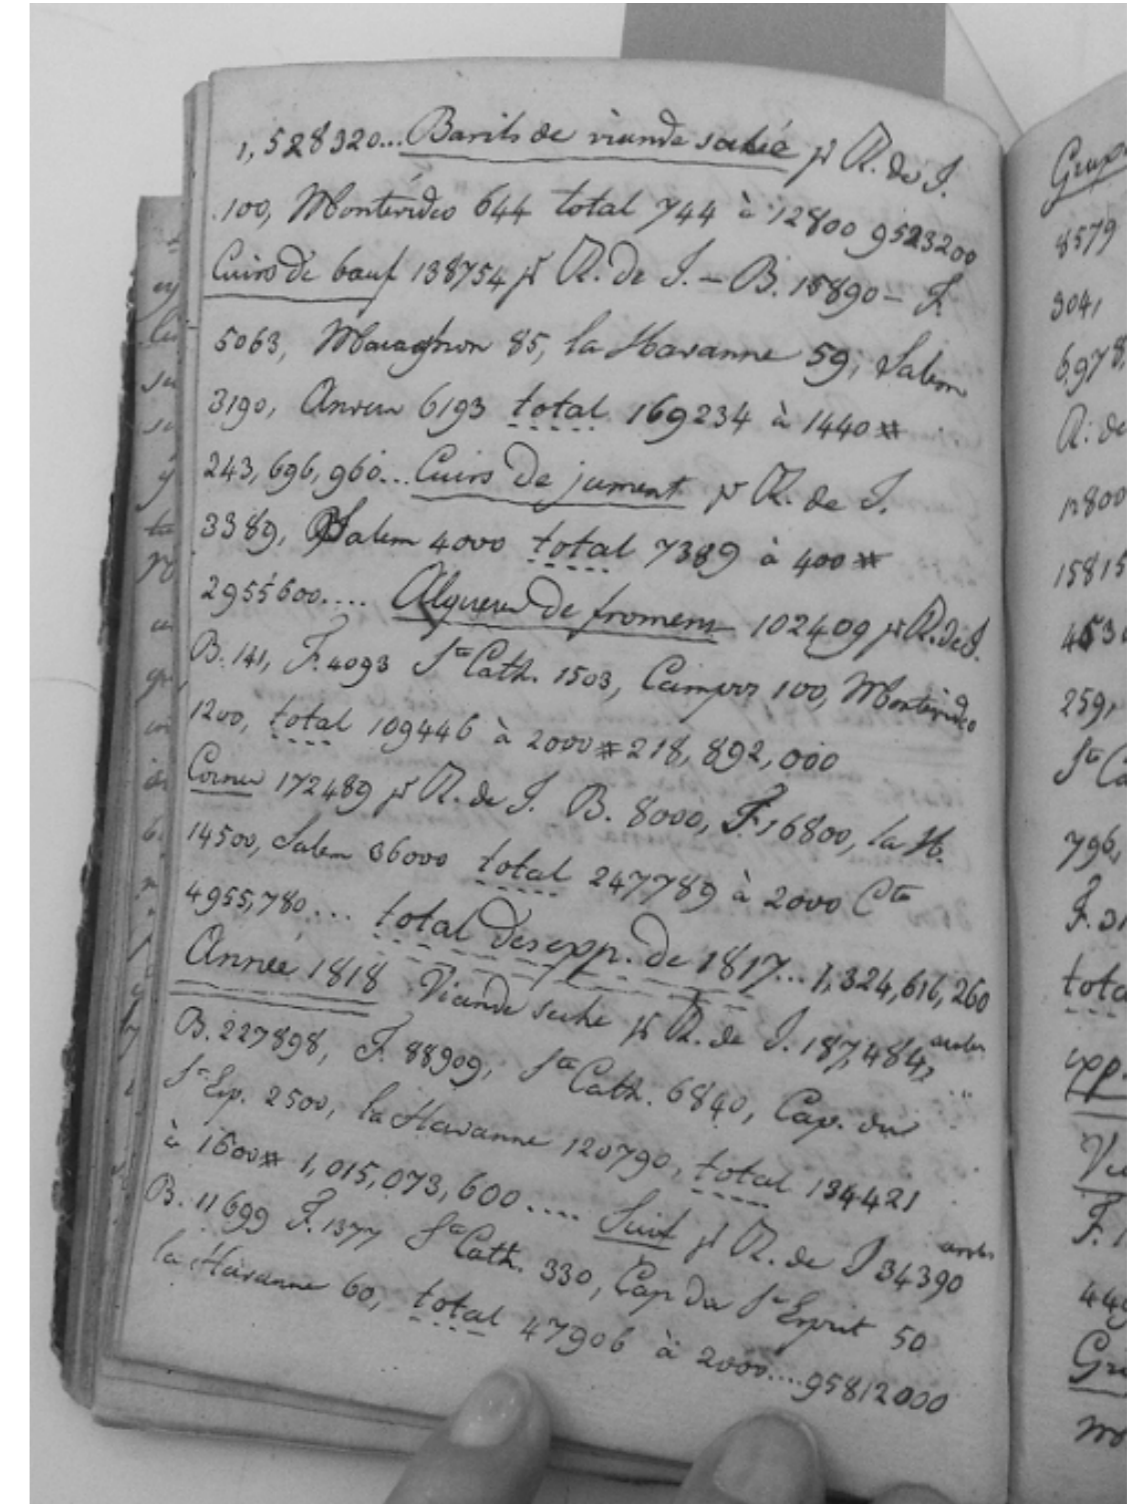 1,528320... Barils de viande salée pr R. de J.
100, Montévidéo 644 total 744 à 12800 9523200
Cuirs de bœuf 138754 pr R. de J. – B. 15890 – F.
5063, Maragnon 85, la Havanne 59, Salem
3190, Anvers 6193 total 169234 à 1440 #
243,696,960... Cuirs de jument pr R. de J.
3389, Salem 4000 total 7389 à 400 #
2955600.... Alqueres de froment 102409 pr R. de J.
B. 141, F. 4093 Ste Cath. 1503, Campos 100, Montevideo
1200, total 109446 à 2000 # 218,892,000
Cornes 172489 pr R. de J. B. 8000, F. 16800, la H.
14500, Salem 36000 total 247789 à 2000 Cte
4955,780... total des exp. de 1817... 1,324,616,260
Année 1818 Viande seche pr R. de J. 187,484, arobes
B. 227898, F. 88909, Ste Cath. 6840, Cap. du
St Esp. 2500, la Havanne 120790, total 134421
à 1600 # 1,015,073,600.... Suif pr R. de J 34390 arobes
B. 11699 F. 1377 Ste Cath. 330, Cap du St Esprit 50
la Havanne 60, total 47906 à 2000....95812000
Grup
8579
304,
6978,
R. de
12800
15815
453
259,
Ste Ca
796,
F. 31
total
exp.
F. 1
449
Gr